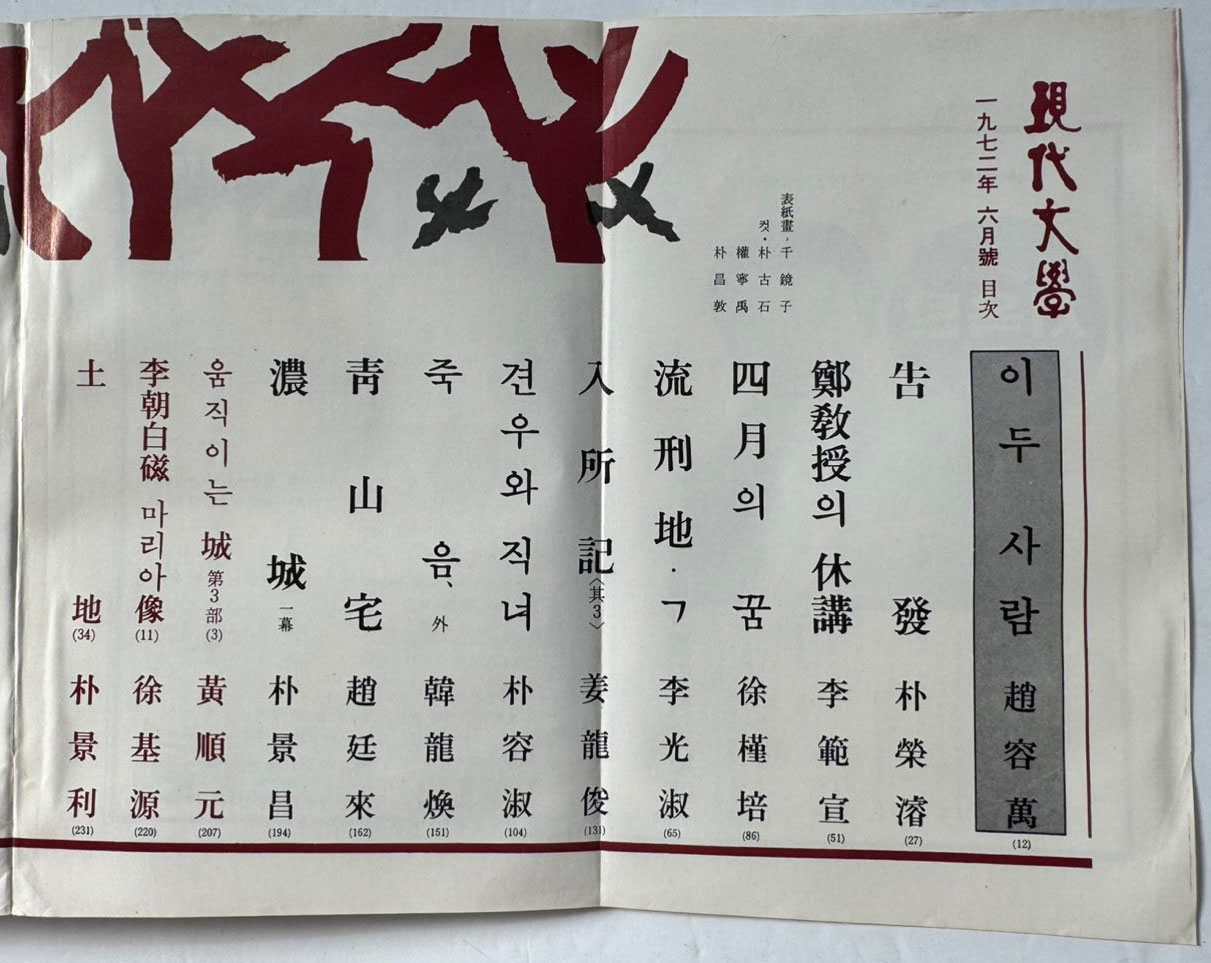 現代文學
一九七二年 六月號 目次
表紙畫·千鏡子
컷·朴古石
權寧禹
朴昌敦
이두 사람 趙容萬 (12)
告發 朴榮濬 (27)
鄭敎授의 休講 李範宣 (51)
四月의 꿈 徐槿培 (86)
流刑地·ㄱ 李光淑 (65)
入所記〈其3〉 姜龍俊 (131)
견우와 직녀 朴容淑 (104)
죽음、外 韓龍煥 (151)
靑山宅 趙廷來 (162)
濃城 一幕 朴景昌 (194)
움직이는 城 第3部(3) 黃順元 (207)
李朝白磁 마리아像(11) 徐基源 (220)
土地(34) 朴景利 (231)